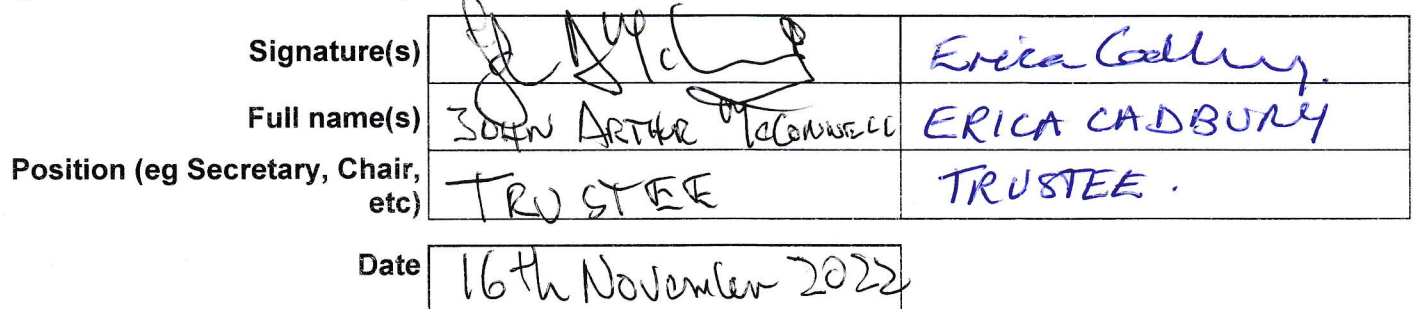 Signature(s) Erica Cadbury.
Full name(s) JOHN ARTHUR McCONNELL ERICA CADBURY
Position (eg Secretary, Chair,
etc) TRUSTEE TRUSTEE.
Date 16th November 2022